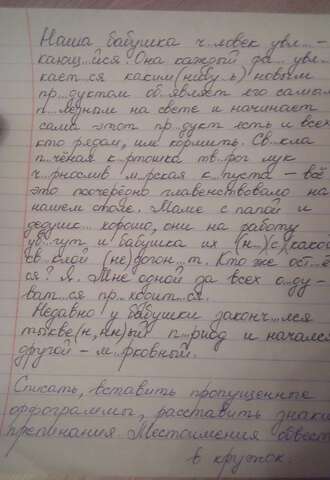 Наша бабушка ч...ловек увл...-
кающ...йся. Она каждый де... увл...
кает...ся каким(нибу...ь) новым
пр...дуктом об...являет его самым
п...лезным на свете и начинает
сама этот пр...дукт есть и всех
кто рядом, им кормить. Св...кла
п...чёная к...ртошка тв...рог лук
ч...рнослив м...рская к...пуста – всё
это поочерёдно главенствовало на
нашем столе. Маме с папой и
дедушк... хорошо, они на работу
уб...гут и бабушка их (н...)с)какой
св...клой (не)догон...т. Кто же ост...ё
ся? Я. Мне одной за всех о...ду-
ват...ся пр...ходит...ся.
Недавно у бабушки законч...лся
тыкве(н,нн)ый п...риод и начался
другой – м...рковный.
Списать, вставить пропущенные
орфограммы, расставить знаки
препинания. Местоимения обвест
в кружок.